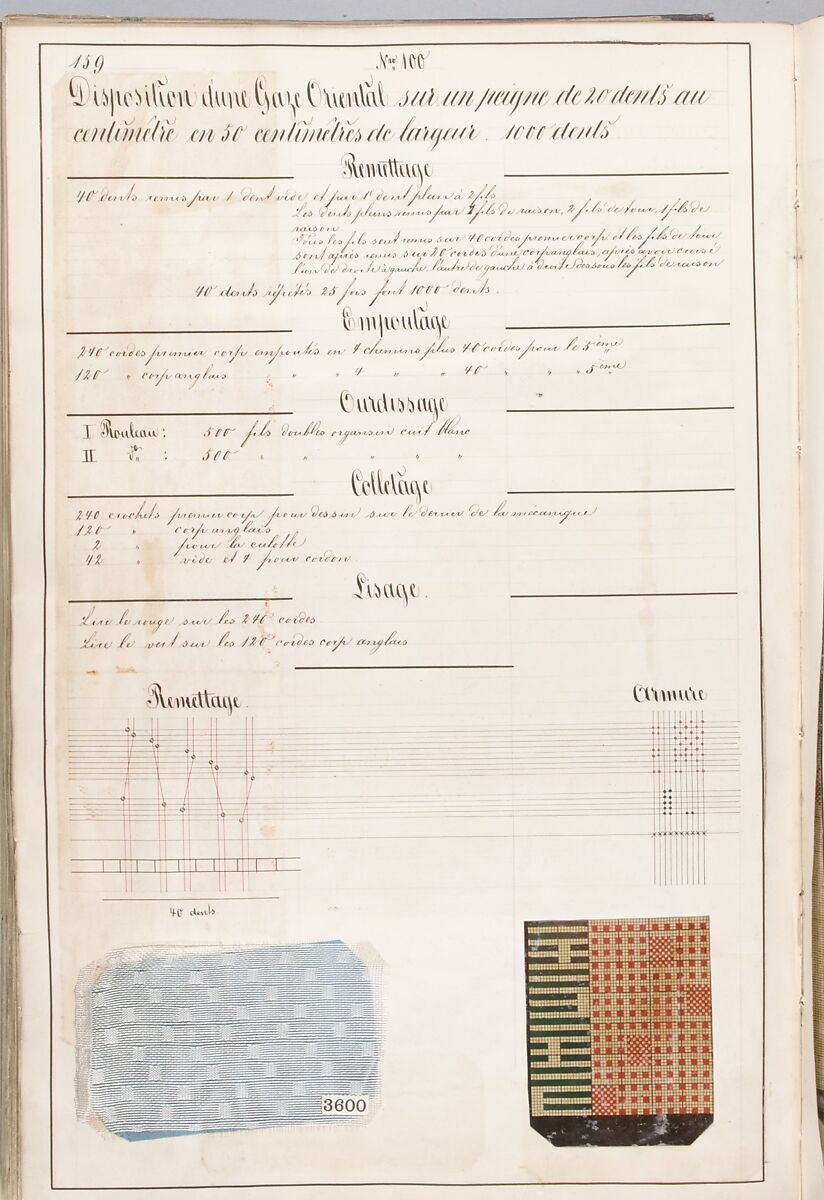 159
Nro 100
Disposition d'une Gaze Oriental sur un peigne de 20 dents au
centimètre en 50 centimètres de largeur. 1000 dents
Remettage
40 dents remis par 1 dent vide, et par 1 dent plein à 2 fils
Les dents pleins remis par 1 fils de raison, 2 fils de tour, 1 fils de
raison
Tous les fils sont remis sur 40 cordes premier corp et les fils de tour
sont après remis sur 20 cordes d'une corp anglais, après avoir croisé
l'un de droite à gauche, l'autre de gauche à droite dessous les fils de raison
40 dents répétés 25 fois font 1000 dents.
Empoutage
240 cordes premier corp empoutés en 4 chemins plus 40 cordes pour le 5ème
120 " corp anglais " " 4 " " 40 " " " 5ème
Ourdissage
I Rouleau: 500 fils doubles organsin cuit blanc
II do : 500 " " " " "
Colletage
240 crochets premier corp pour dessin sur le dernier de la mécanique
120 " corp anglais
2 " pour la culotte
42 " vide et 4 pour cordon.
Lisage.
Lire le rouge sur les 240 cordes
Lire le vert sur les 120 cordes corp anglais
Remettage.
Armure
40 dents
3600